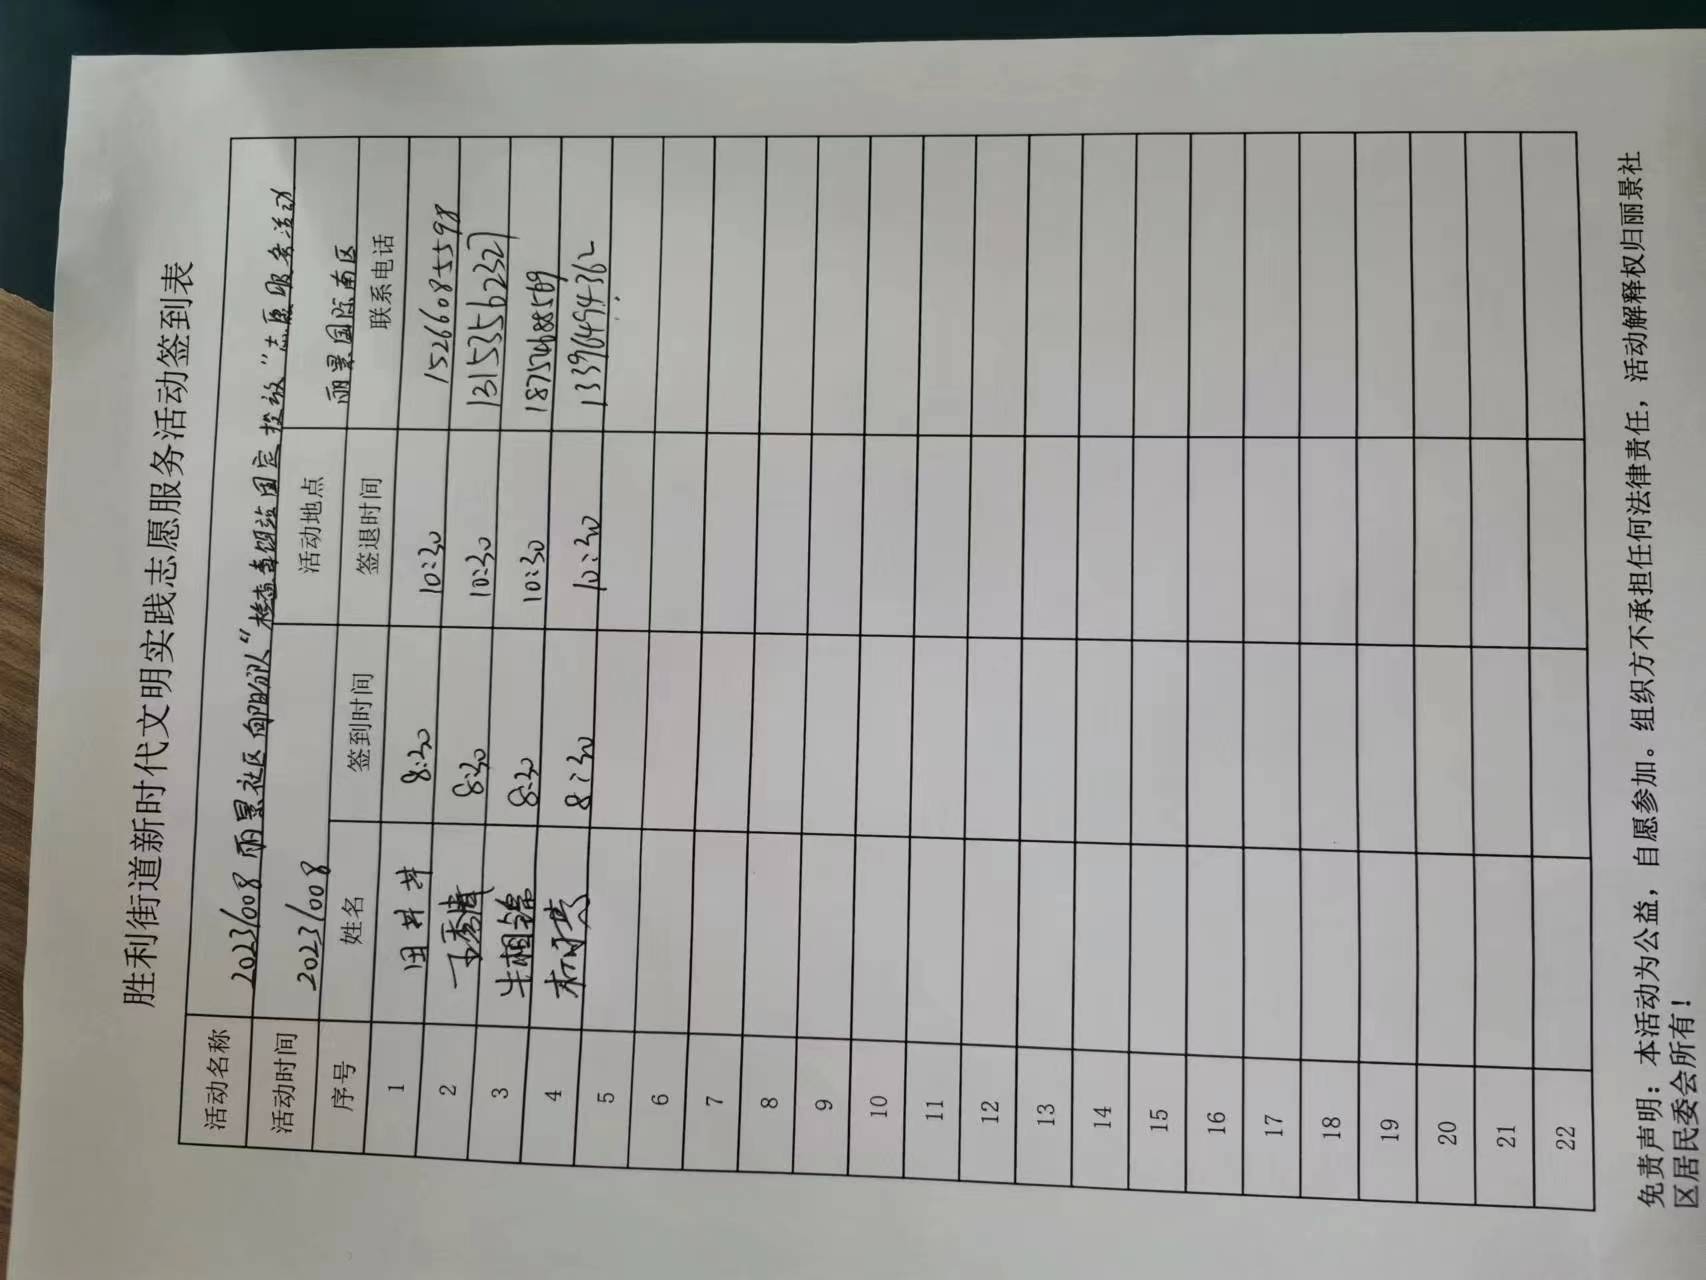 胜利街道新时代文明实践志愿服务活动签到表
活动名称 20231008丽景社区向阳分队“检查垃圾固定投放”志愿服务活动
活动时间 20231008 活动地点 丽景国际南区
序号 姓名 签到时间 签退时间 联系电话
1 田井井 8:30 10:30 15266085598
2 8:30 10:30 13153556232
3 牛相锦 8:30 10:30
4 8:30 10:30 13396494362
5
6
7
8
9
10
11
12
13
14
15
16
17
18
19
20
21
22
免责声明：本活动为公益，自愿参加。组织方不承担任何法律责任，活动解释权归丽景社
区居民委会所有！